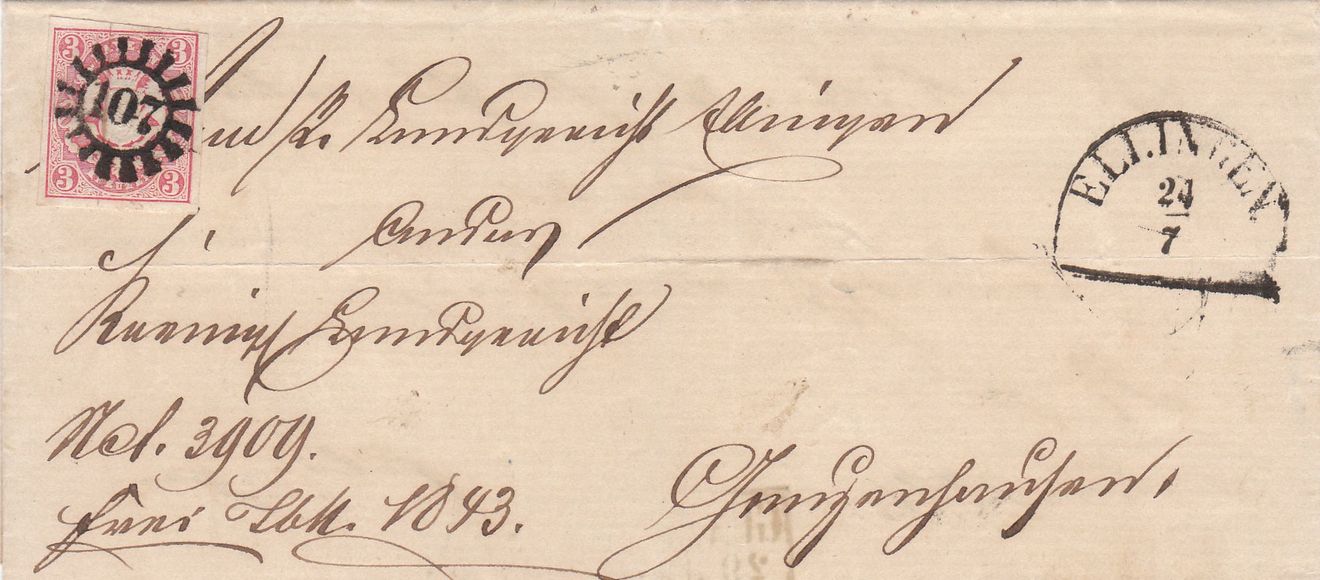 3 3
107
3 3
K. Landgericht Ellingen
An das
Koenigl Landgericht
Ncl. 3909.
frei Tbk. 1843.
Gunzenhausen.
ELLINGEN
24
7